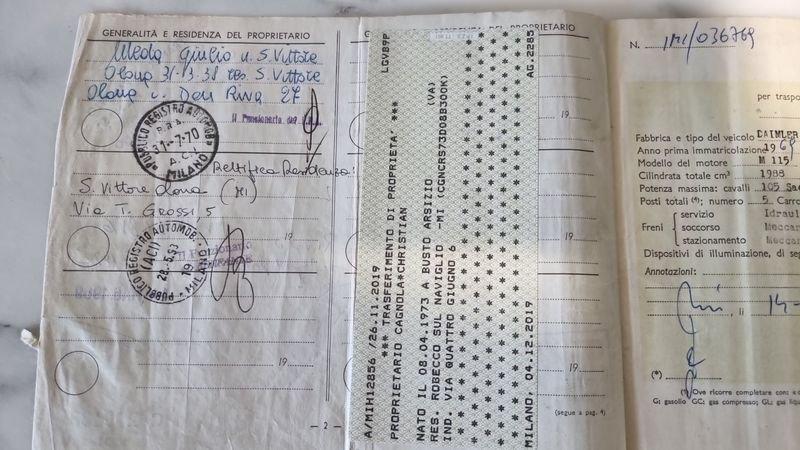 GENERALITÀ E RESIDENZA DEL PROPRIETARIO
Meda Giulio n. S. Vittore
Olona 31-3-38 res. S. Vittore
Olona v. Don Riva 27
PUBBLICO REGISTRO AUTOMOB.
31-7-70
A.C.I.
MILANO
19
Rettifica Residenza:
S. Vittore Olona (MI)
Via T. Grossi 5
19
PUBBLICO REGISTRO AUTOMOB.
(ACI)
28.5.93
MILANO
19
— 2 —
DENZA DEL PROPRIETARIO
A/MIH12856 /26.11.2019 LGV89P
*** TRASFERIMENTO DI PROPRIETA' ***
PROPRIETARIO CAGNOLA*CHRISTIAN
NATO IL 08.04.1973 A BUSTO ARSIZIO (VA)
RES. ROBECCO SUL NAVIGLIO -MI (CGNCRS73D08B300K)
IND. VIA QUATTRO GIUGNO 6
MILANO, 04.12.2019 AG.2285
19
19
19
(segue a pag. 4)
N. 1MI/036769
per traspo
Fabbrica e tipo del veicolo DAIMLER
Anno prima immatricolazione 1969
Modello del motore M 115
Cilindrata totale cm³ 1988
Potenza massima: cavalli 105
Posti totali (⁴); numero 5 Carro
Freni
servizio Idraul
soccorso Meccan
stazionamento Meccan
Dispositivi di illuminazione, di seg
Annotazioni:
, lì 14-
(*)
(*) Ove ricorre completare con:
G: gasolio GC: gas compresso; GL: gas liqu